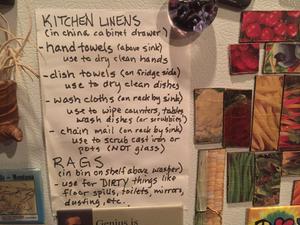 KITCHEN LINENS
(in china cabinet drawer)
- hand towels (above sink)
use to dry clean hands
- dish towels (on fridge side)
use to dry clean dishes
- wash cloths (on rack by sink)
use to wipe counters, tables
wash dishes (or scrubbies)
- chain mail (on rack by sink)
use to scrub cast iron or
pots (NOT glass)
RAGS
(in bin on shelf above washer)
- use for DIRTY things like
floor spills, toilets, mirrors,
dusting, etc.
Genius is